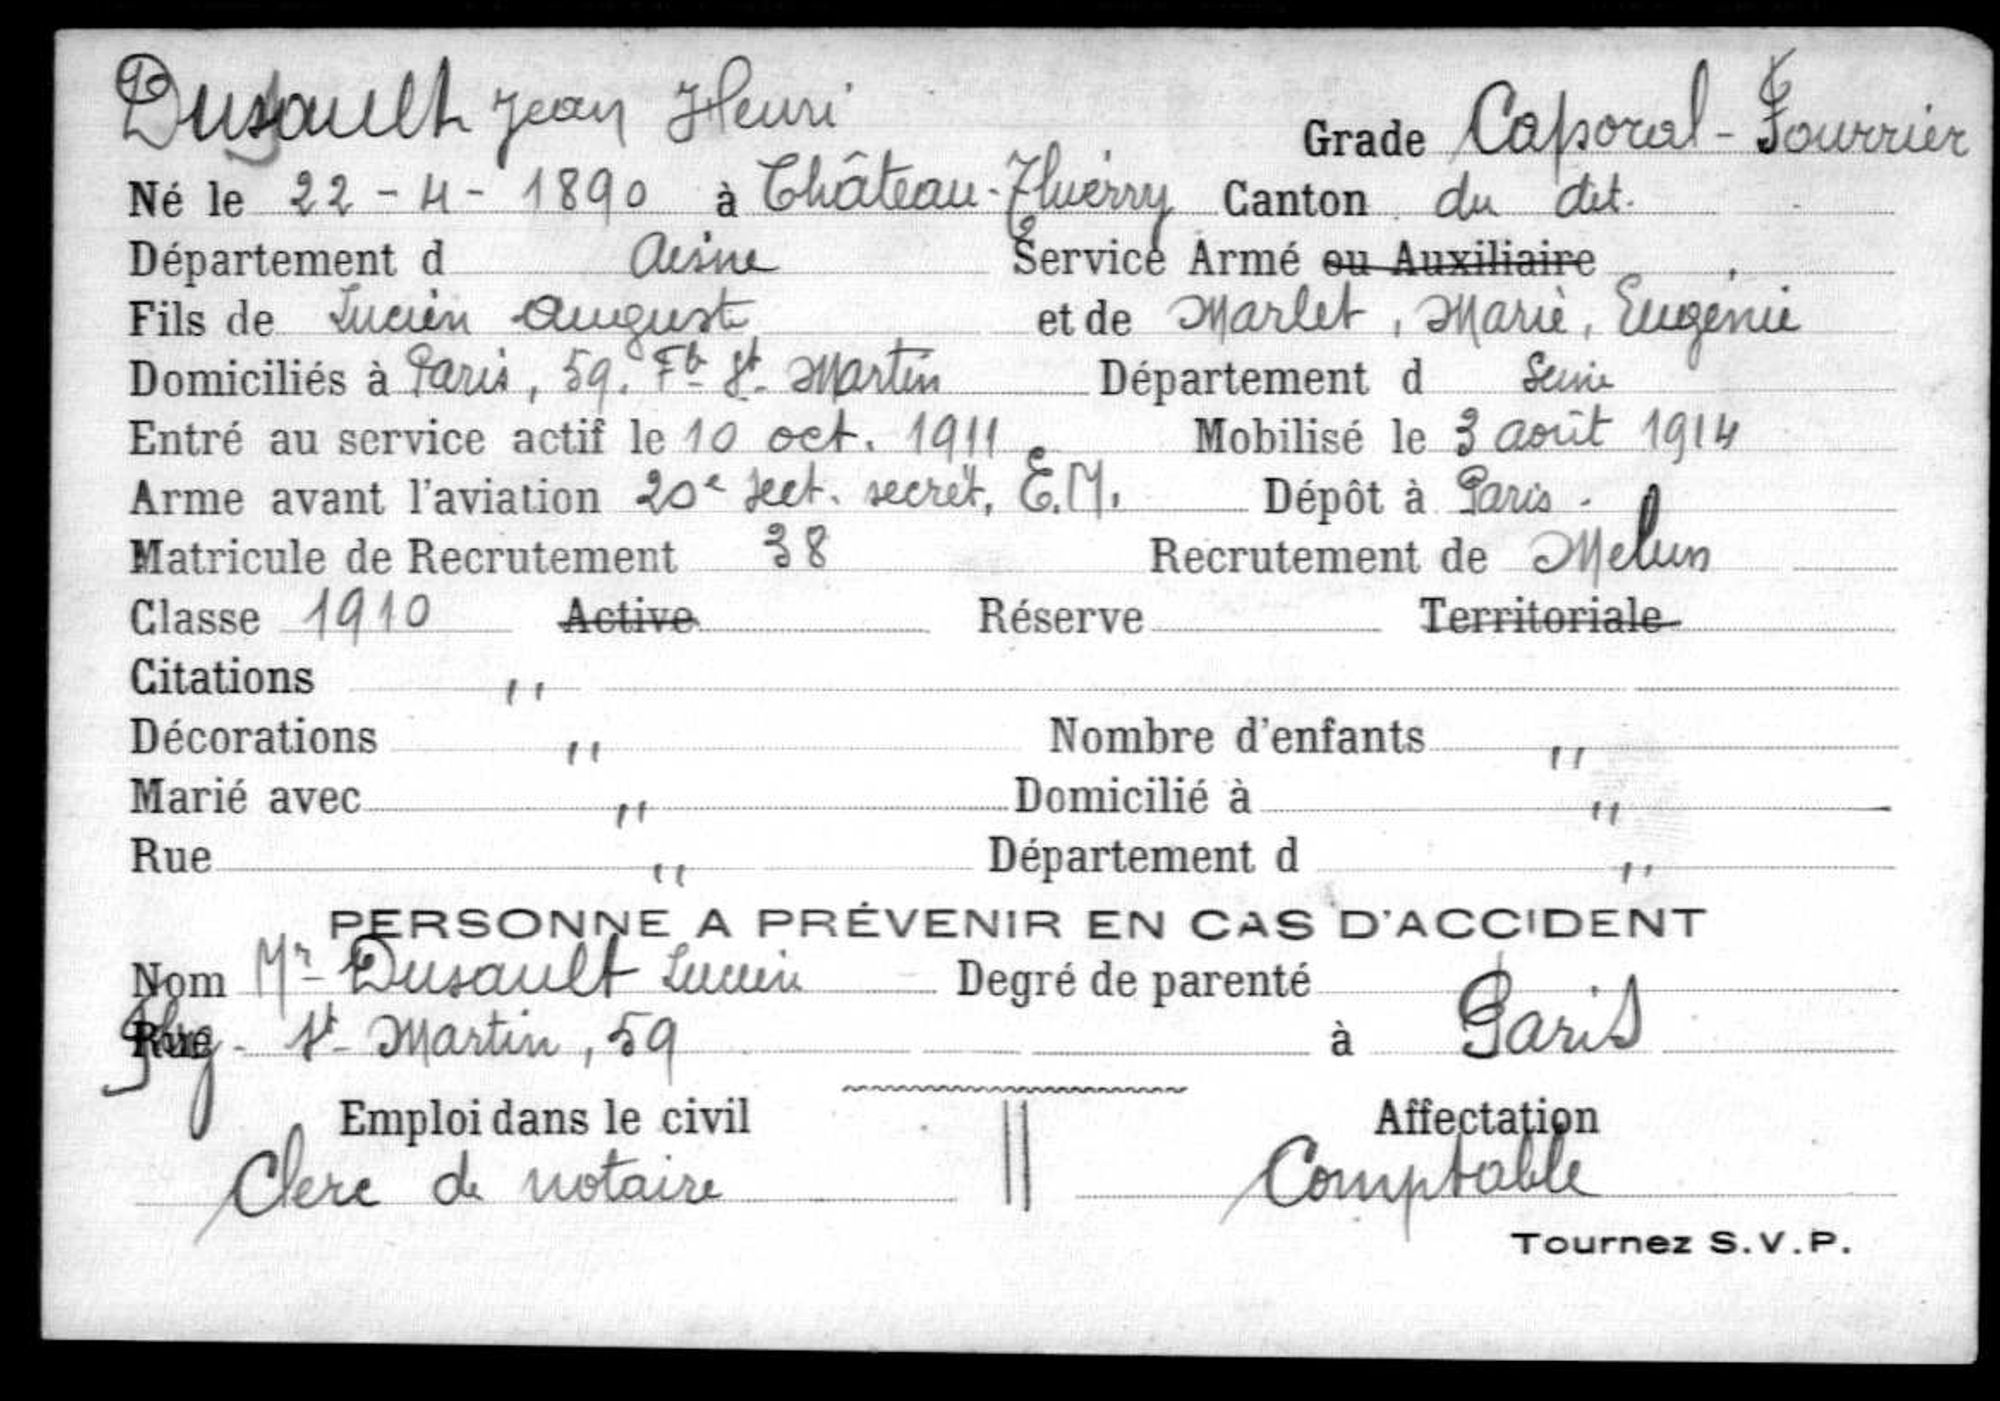 Dusault Jean Henri Grade Caporal-Fourrier
Né le 22-4-1890 à Château-Thierry Canton du dit.
Département d Aisne Service Armé ou Auxiliaire
Fils de Lucien August et de Marlet, Marie, Eugénie
Domiciliés à Paris, 59. Fb St Martin Département d Seine
Entré au service actif le 10 oct. 1911 Mobilisé le 3 août 1914
Arme avant l'aviation 20e sect. secrét. E.M. Dépôt à Paris.
Matricule de Recrutement 38 Recrutement de Melun
Classe 1910 Active Réserve Territoriale
Citations ,,
Décorations ,, Nombre d'enfants ,,
Marié avec ,, Domicilié à ,,
Rue ,, Département d ,,
PERSONNE A PRÉVENIR EN CAS D'ACCIDENT
Nom Mr Dusault Lucien Degré de parenté
Rue Fbg - St Martin, 59 à Paris
Emploi dans le civil Affectation
Clerc de notaire Comptable
Tournez S.V.P.